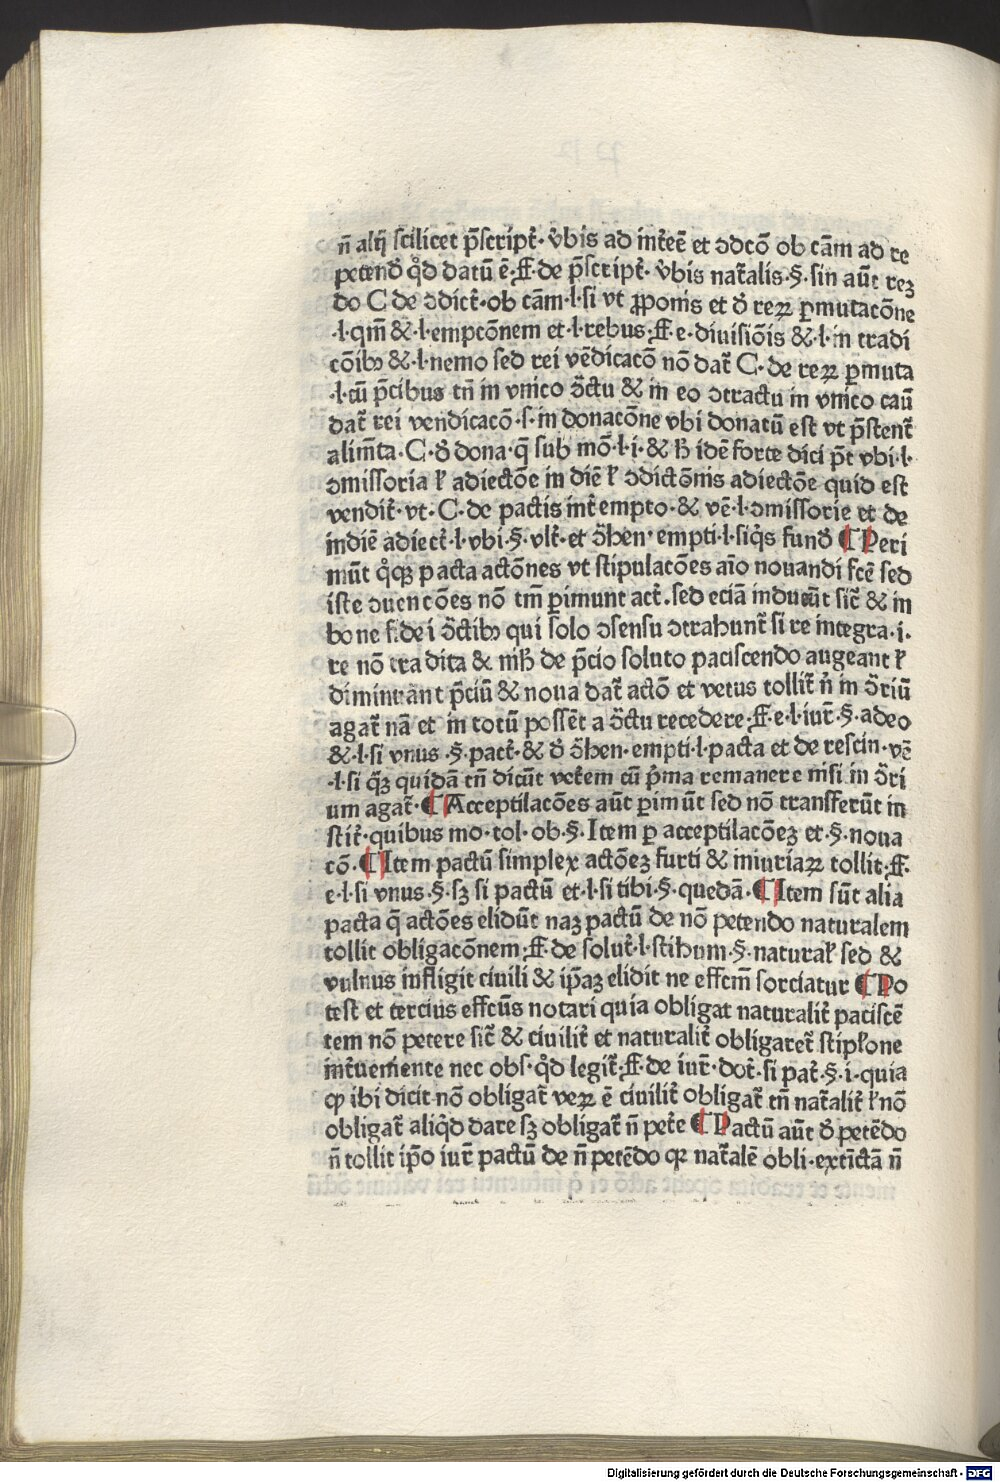 n̄ alij scilicet p̄script̄· v̄bis ad int̄eē et ↄdcō ob cām ad re
petend̄ qd̄ datū ē·ff·de p̄script̄· v̄bis nat̄alis·§·sin aūt reꝫ
do C de ↄdict̄·ob cām·l·si vt ꝓponis et d̄ reꝝ ꝑmutacōne
·l·qm̄ &·l·empcōnem et·l·rebus·ff·e·diuisiōis &·l·in tradi
cōibꝫ &·l·nemo sed rei vēdicacō nō dat̄ C·de reꝝ ꝑmuta
·l·cū p̄cibus tn̄ in vnico ↄ̄ctu & in eo ↄtractu in vnico caū
dat̄ rei vendicacō·s·in donacōne vbi donatū est vt p̄stent̄
alim̄ta·C·d̄ dona·q̄ sub mō·l·i·& ħ idē forte dici p̄t vbi·l·
ↄmissoria ł adiectōe in diē ł ↄdictōnis adiectōe quid est
vendit̄·vt·C·de pactis int̄ empto·& vē·l·ↄmissorie et de
indiē adiect̄·l·vbi·§·vlt̄·et ↄ̄hen· empti·l·siq̄s fund̄ ¶ Peri
mūt q̊qꝫ pacta actōnes vt stipulacōes aīo nouandi fcē sed
iste ↄuencōes nō tm̄ ꝑimunt act̄·sed eciā inducūt sic̄ & in
bone fidei ↄ̄ctibꝫ qui solo ↄsensu ↄtrahunt̄ si re integra·i·
re nō tradita & nih̄ de p̄cio soluto paciscendo augeant ł
diminuānt p̄ciū & noua dat̄ actō et vetus tollit̄ n̄ in ↄ̄riū
agat̄ nā et in totū possēt a ↄ̄ctu recedere·ff·e·l·iur̄·§·adeo
&·l·si vnus·§·pact̄·& d̄ ↄ̄hen·empti·l·pacta et de rescin·vē
·l·si q̄ꝫ quidā tn̄ dicūt vet̄em cū p̄ma remanere nisi in ↄ̄ri
um agat̄· ¶ Acceptilacōes aūt ꝑimūt sed nō transferūt in
stit̄·quibus mo·tol·ob·§·Item ꝑ acceptilacōeꝫ et·§·noua
cō· ¶ Item pactū simplex actōeꝫ furti & iniuriaꝝ tollit·ff·
e·l·si vnus·§·sꝫ si pactū et·l·si tibi·§·quedā· ¶ Item sūt alia
pacta q̄ actōes elidūt naꝫ pactū de nō petendo naturalem
tollit obligacōnem·ff·de solut̄·l·stihum·§·naturał sed &
vulnus infligit ciuili & ip̄aꝫ elidit ne effcm̄ sorciatur ¶ Po
test et tercius effcūs notari quia obligat naturalit̄ paciscē
tem nō petere sic̄ & ciuilit̄ et naturalit̄ obligaret̄ stipłone
int̄ueniente nec obs·qd̄ legit̄·ff·de iur̄·dot̄·si pat̄·§·i·quia
ꝙ ibi dicit nō obligat̄ veꝝ ē ciuilit̄ obligat̄ tn̄ nat̄alit̄ ł nō
obligat̄ aliqd̄ dare sꝫ obligat̄ n̄ pet̄e ¶ Pactū aūt d̄ petēdo
n̄ tollit ip̄o iur̄ pactū de n̄ petēdo qꝛ nat̄alē obli·extīctā n̄
Digitalisierung gefördert durch die Deutsche Forschungsgemeinschaft - DFG